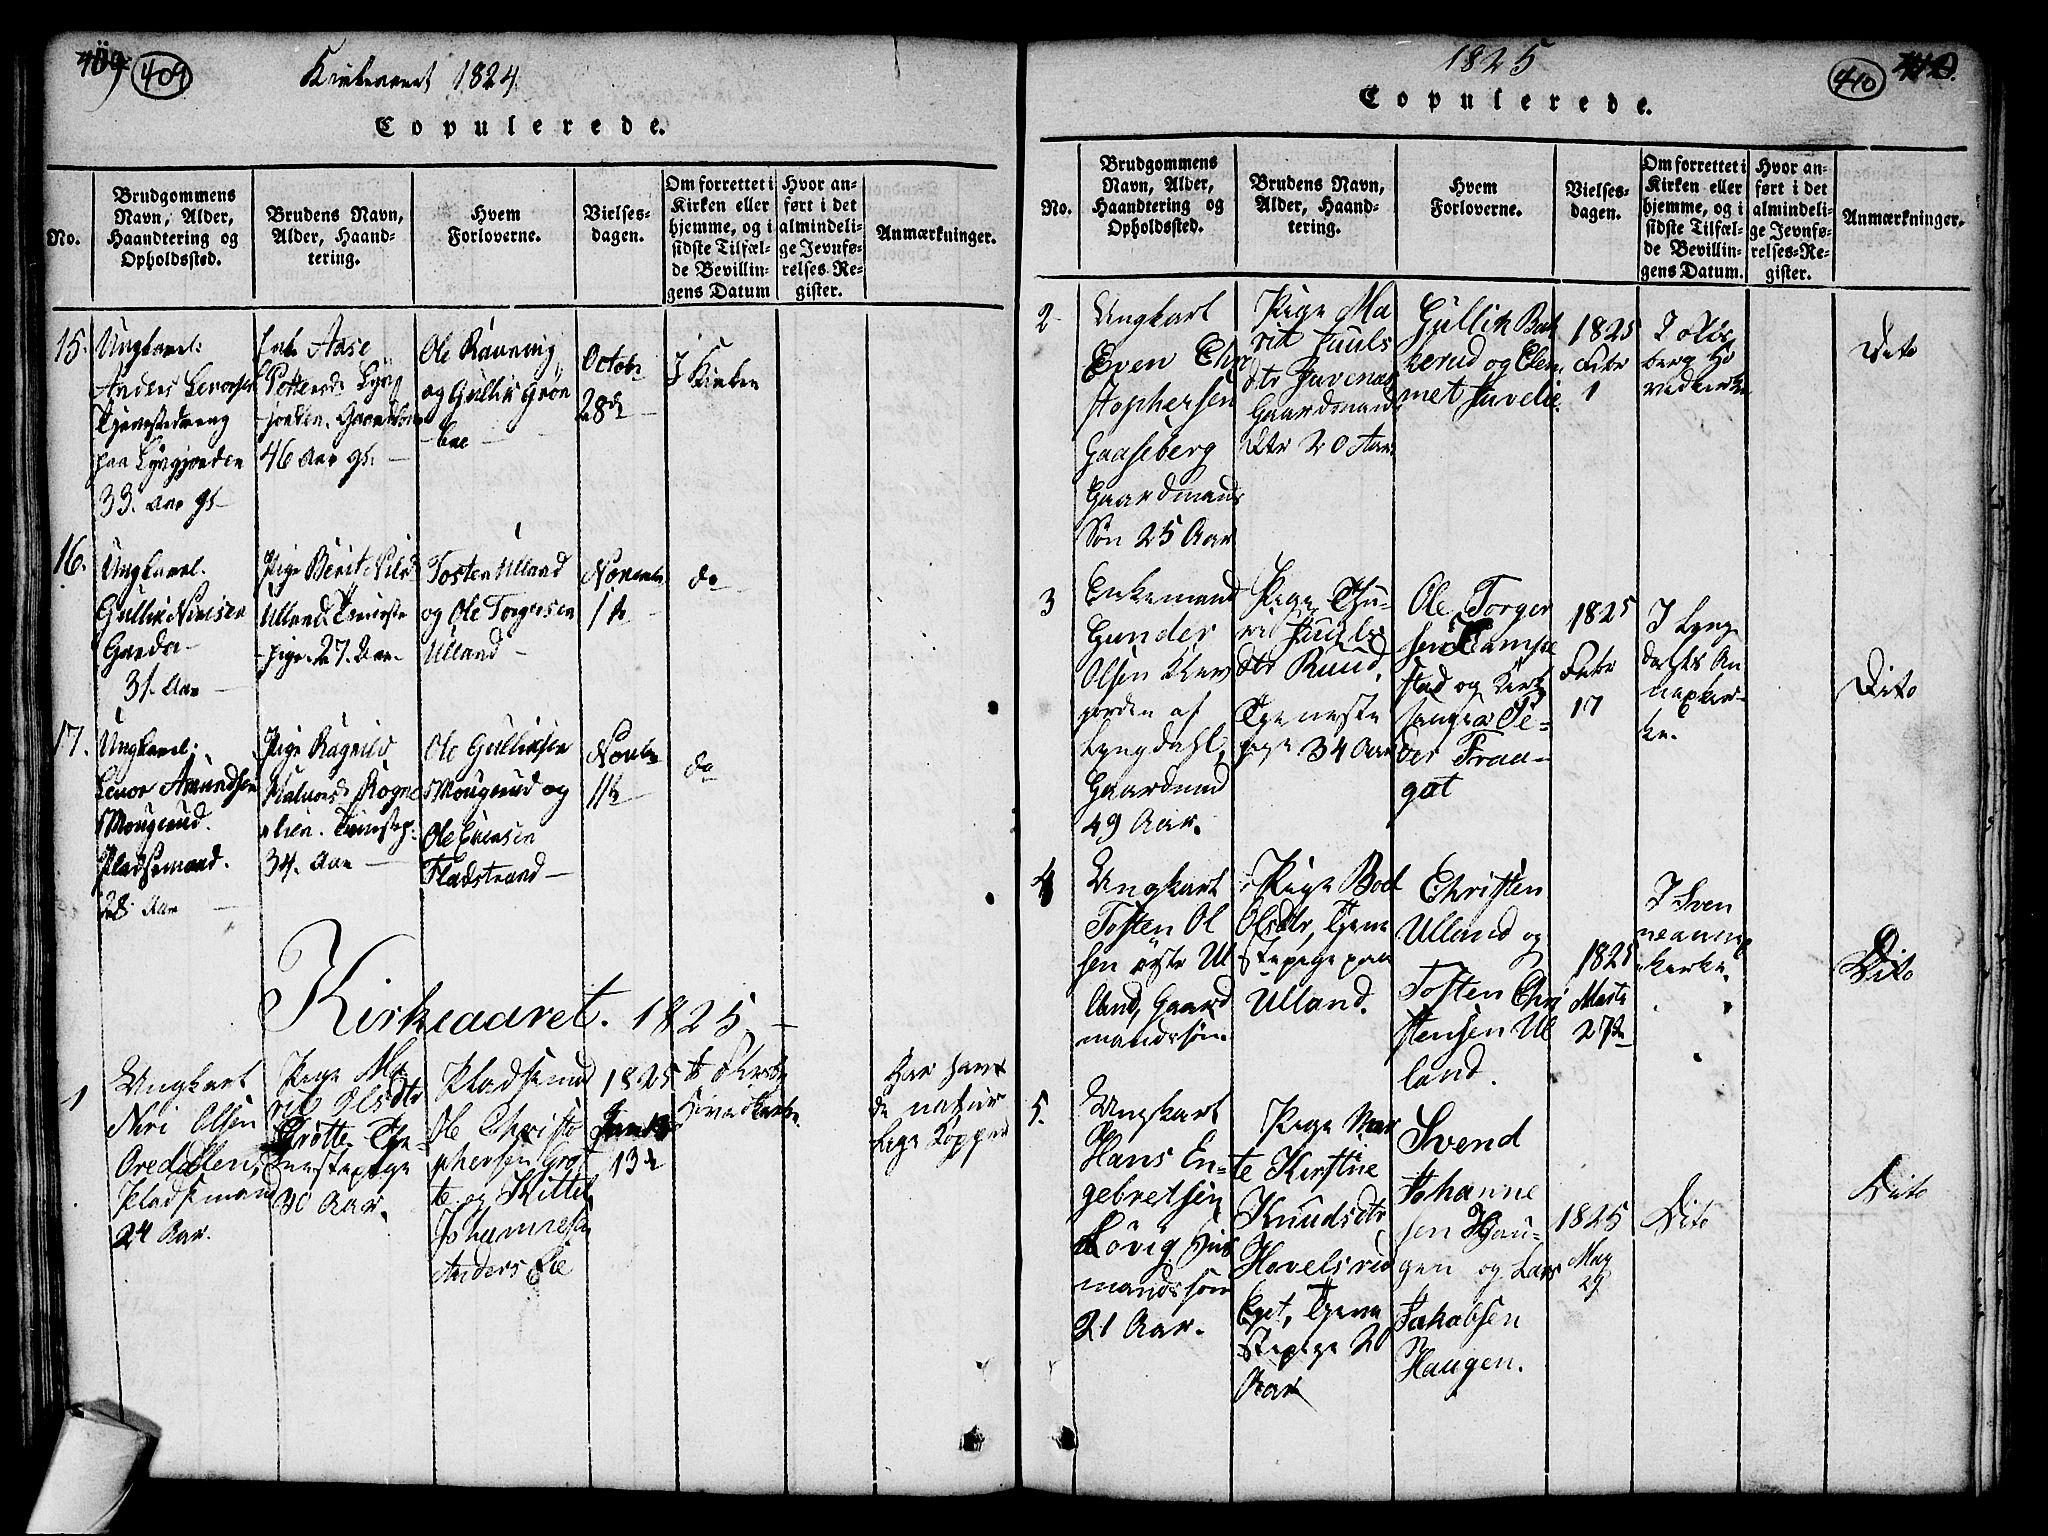 409
Kirkeaaret 1824
Copulerede.
No.
Brudgommens
Navn, Alder,
Haandtering og
Opholdssted.
Brudens Navn,
Alder, Haand-
tering.
Hvem
Forloverne.
Vielses-
dagen.
Om forrettet i
Kirken eller
hjemme, og i
sidste Tilfæl-
de Bevillin-
gens Datum
Hvor an-
ført i det
almindeli-
ge Jevnfø-
relses-Re-
gister.
Anmærkninger.
15.
Ungkarl:
Anders
33. Aar gl
Enke Aase
46 Aar gl.
Ole Ravnvig
og Gullik Grøn
bae
Octobr
28d
I Kirken
16.
Ungkarl.
Gullik Nielsen
31. Aar
Pige Berit Nils
Ulland Tieneste
pige. 27. Aar
Tosten Ulland
og Ole Torgersen
Ulland
Novembr
1ste
do
17.
Ungkarl:
Amundsen
Mougerud.
Pladsemand.
28 Aar
Pige Ragnild
34. Aar
Ole Gulliksen
Mougerud og
Ole Evensen
Fladstrand
Novbr
11te
do
Kirkeaaret. 1825
1
Ungkart
Niri Olsen
Oredalen,
Pladsemand
24 Aar.
Pige Ma
rit Olsdtr
Grøtte Tje-
nestepige
30 Aar.
Pladsemd
Ole Christo
phersen Grøt
te og Kittel
Johannesen
Anders Eie
1825
Jan
13de
Hovedkirke
Har havt
de natur
lige Kopper
1825
Copulerede.
410
No.
Brudgommens
Navn, Alder,
Haandtering og
Opholdssted.
Brudens Navn,
Alder, Haand-
tering.
Hvem
Forloverne.
Vielses-
dagen.
Om forrettet i
Kirken eller
hjemme, og i
sidste Tilfæl-
de Bevillin-
gens Datum.
Hvor an-
ført i det
almindeli-
ge Jevnfø-
relses-Re-
gister.
Anmærkninger.
2
Ungkart
Even Chri
stophersen
Gaaseberg
Gaardmands
Søn 25 Aar
Pige Ma
rit Juuls
dtr Juvenæs
Gaardmands
dtr 20 Aar
Gullik Bak
kerud og Ele
met Juvelie.
1825
Febr
1
I Olds
berg Ho
vedkirke
Dito
3
Enkemand
Gunder
Olsen Klev
jorden af
Lyngdahl,
Gaardmand
49 Aar.
Pige Thu-
ri Juuls
dtr Ruud,
Tjeneste
pige 34 Aar
Ole Torger
sen Lampe
stad og Kirk
sanger Pe-
der Fraa-
gat
1825
Febr
17
I Lyng
dahls An
nexkir-
ke.
Dito
4
Ungkart
Tosten Ol
sen østre Ul
land, Gaard
mandssøn.
Pige Boel
Olsdtr, Tjene
stepige paa
Ulland.
Christen
Ulland og
Tosten Chri
stensen Ul
land.
1825
Marts
27de
I Sven
neannex
kirke.
Dito
5.
Ungkart
Hans En-
gebretsen
Løvig Hus
mandssøn
21 Aar.
Pige Mar
te Kirstine
Knudsdtr
Hovelsrud
Eyet, Tjene
stepige 20
Aar
Svend
Johanne
sen Hau-
gen og Lars
Jakobsen
Haugen.
1825
May
29
Dito
Dito